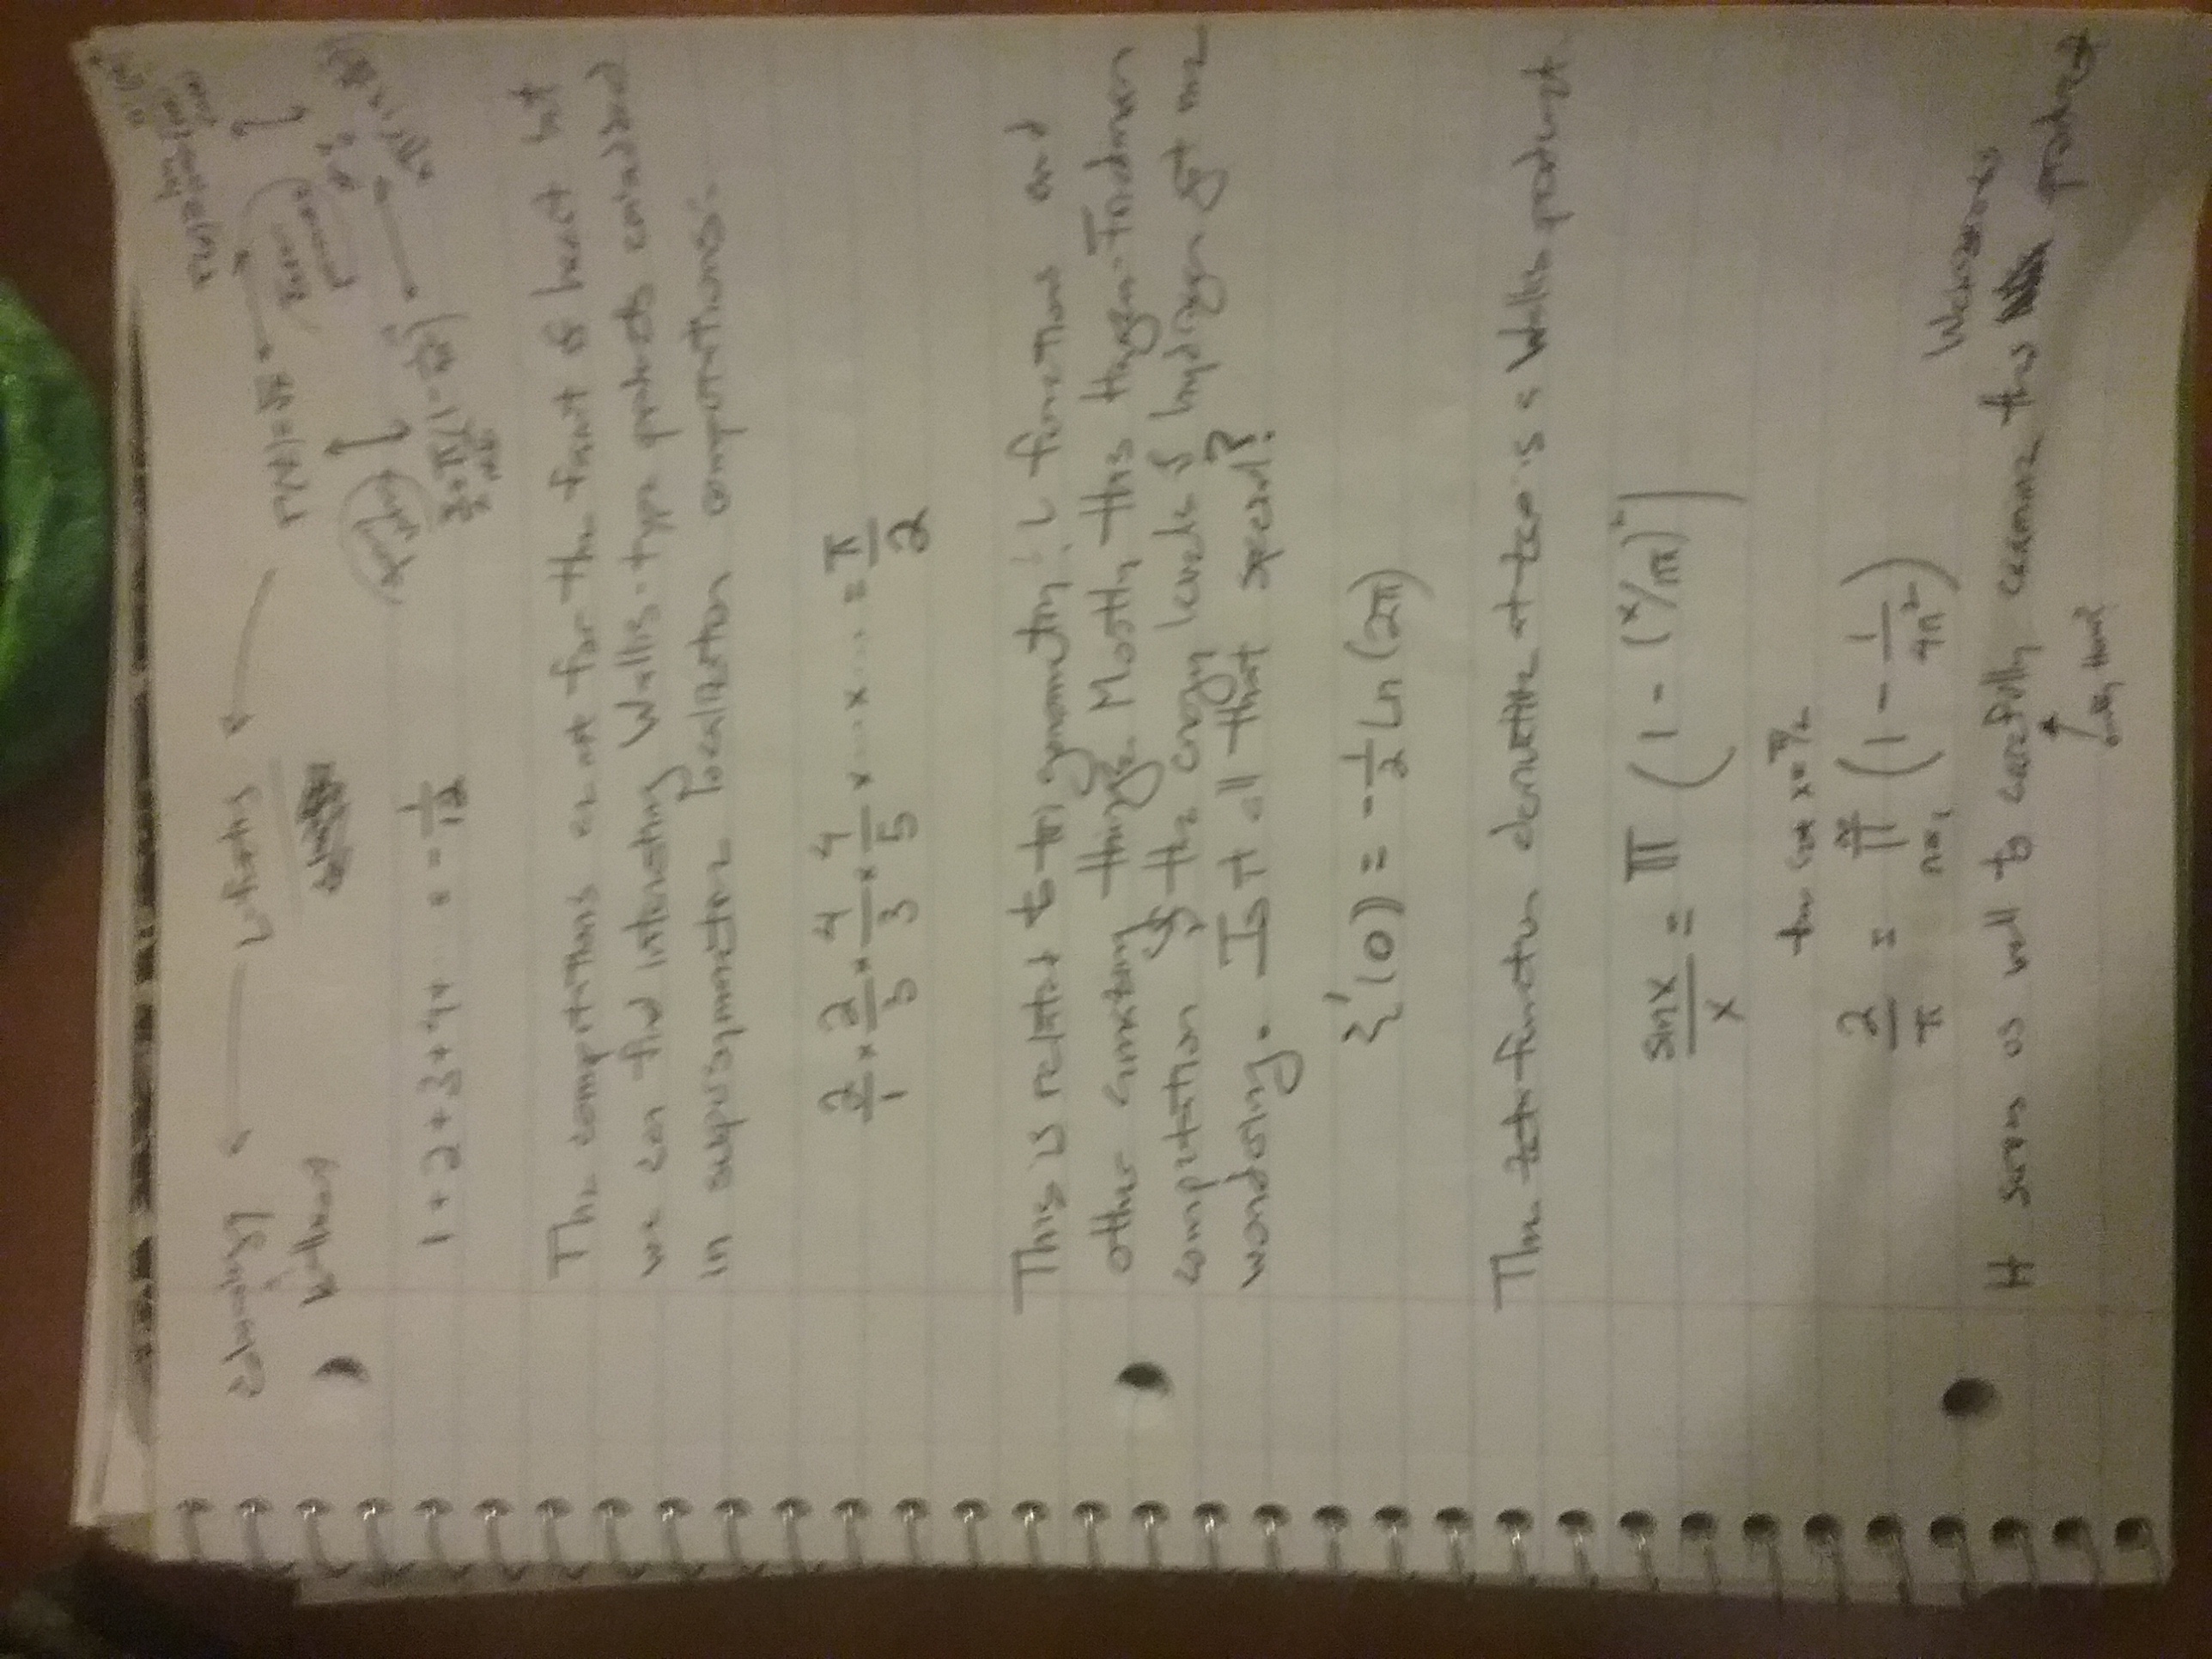 L-functions
Γ(½) = √π
1 + 2 + 3 + 4 + ... = 1/12
The computations are not for the faint of heart but
we can find interesting Wallis-type products embedded
in supersymmetric localization computations:
2/1 × 2/3 × 4/3 × 4/5 × ... × ... = π/2
This is related to trigonometry, L functions and
other amazing things. Mostly this Hagen-Friedmann
computation of the energy levels of hydrogen got me
wondering. Is it all that special?
ξ'(0) = -1/2 Ln (2π)
The zeta function derivative at zero is a Wallis product.
sinx/x = Π (1 - (x/nπ)²)
then set x = π/2
2/π = ∞Π n=1 (1 - 1/4n²)
Weierstrass
It serves us well to carefully examine this product